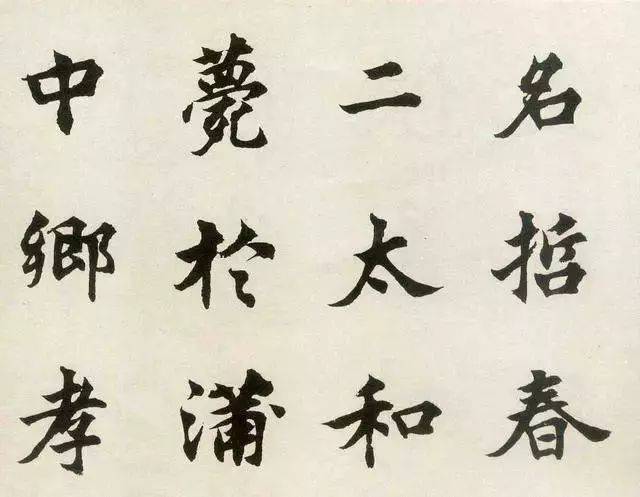 名哲春
二太和
薨於浦
中鄉孝